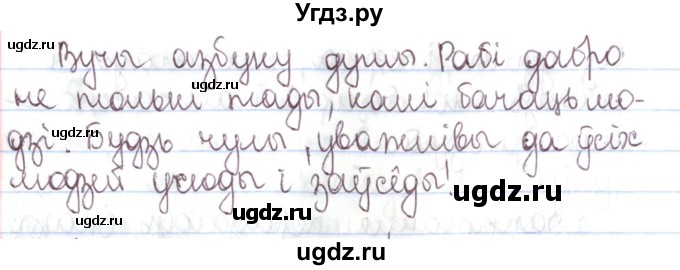 Угдз.ру
Вучы азбуку душы. Рабі дабро
не толькі тады, калі бачаць лю-
дзі. Будзь чулы, уважлівы да ўсіх
людзей усюды і заўсёды!
ugdz.ru
ugdz.ru
ugdz.ru
ugdz.ru
ugdz.ru
ugdz.ru
ugdz.ru